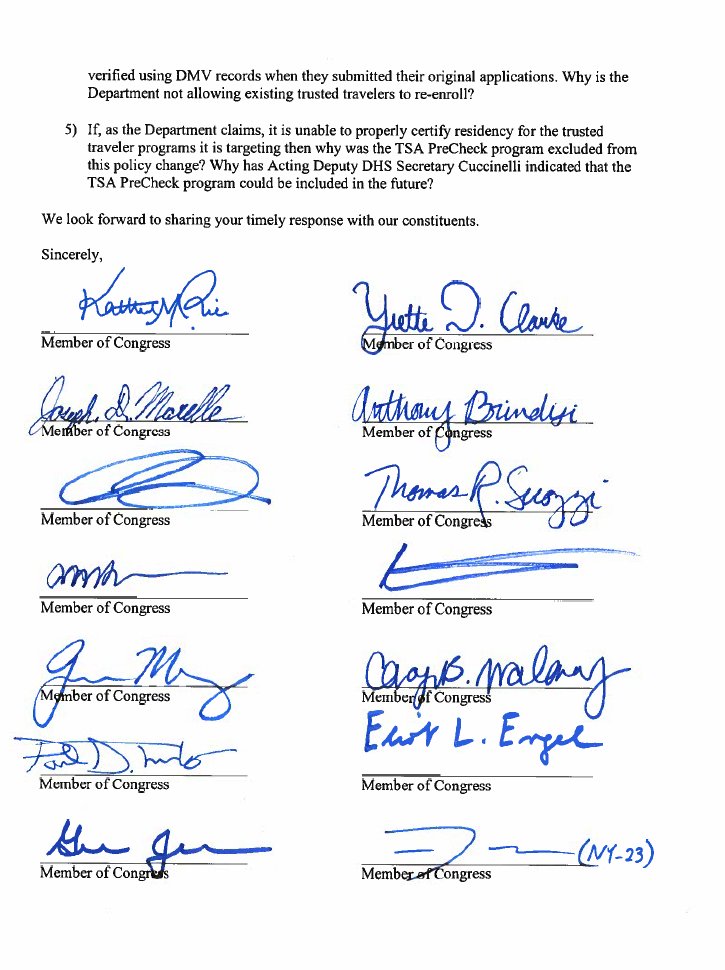 verified using DMV records when they submitted their original applications. Why is the
Department not allowing existing trusted travelers to re-enroll?
5) If, as the Department claims, it is unable to properly certify residency for the trusted
traveler programs it is targeting then why was the TSA PreCheck program excluded from
this policy change? Why has Acting Deputy DHS Secretary Cuccinelli indicated that the
TSA PreCheck program could be included in the future?
We look forward to sharing your timely response with our constituents.
Sincerely,
Yvette D. Clarke
Member of Congress
Member of Congress
Joseph. D. Morelle
Anthony Brindisi
Member of Congress
Member of Congress
Thomas R. Suozzi
Member of Congress
Member of Congress
Member of Congress
Member of Congress
Carolyn B. Maloney
Member of Congress
Member of Congress
Eliot L. Engel
Member of Congress
Member of Congress
(NY-23)
Member of Congress
Member of Congress